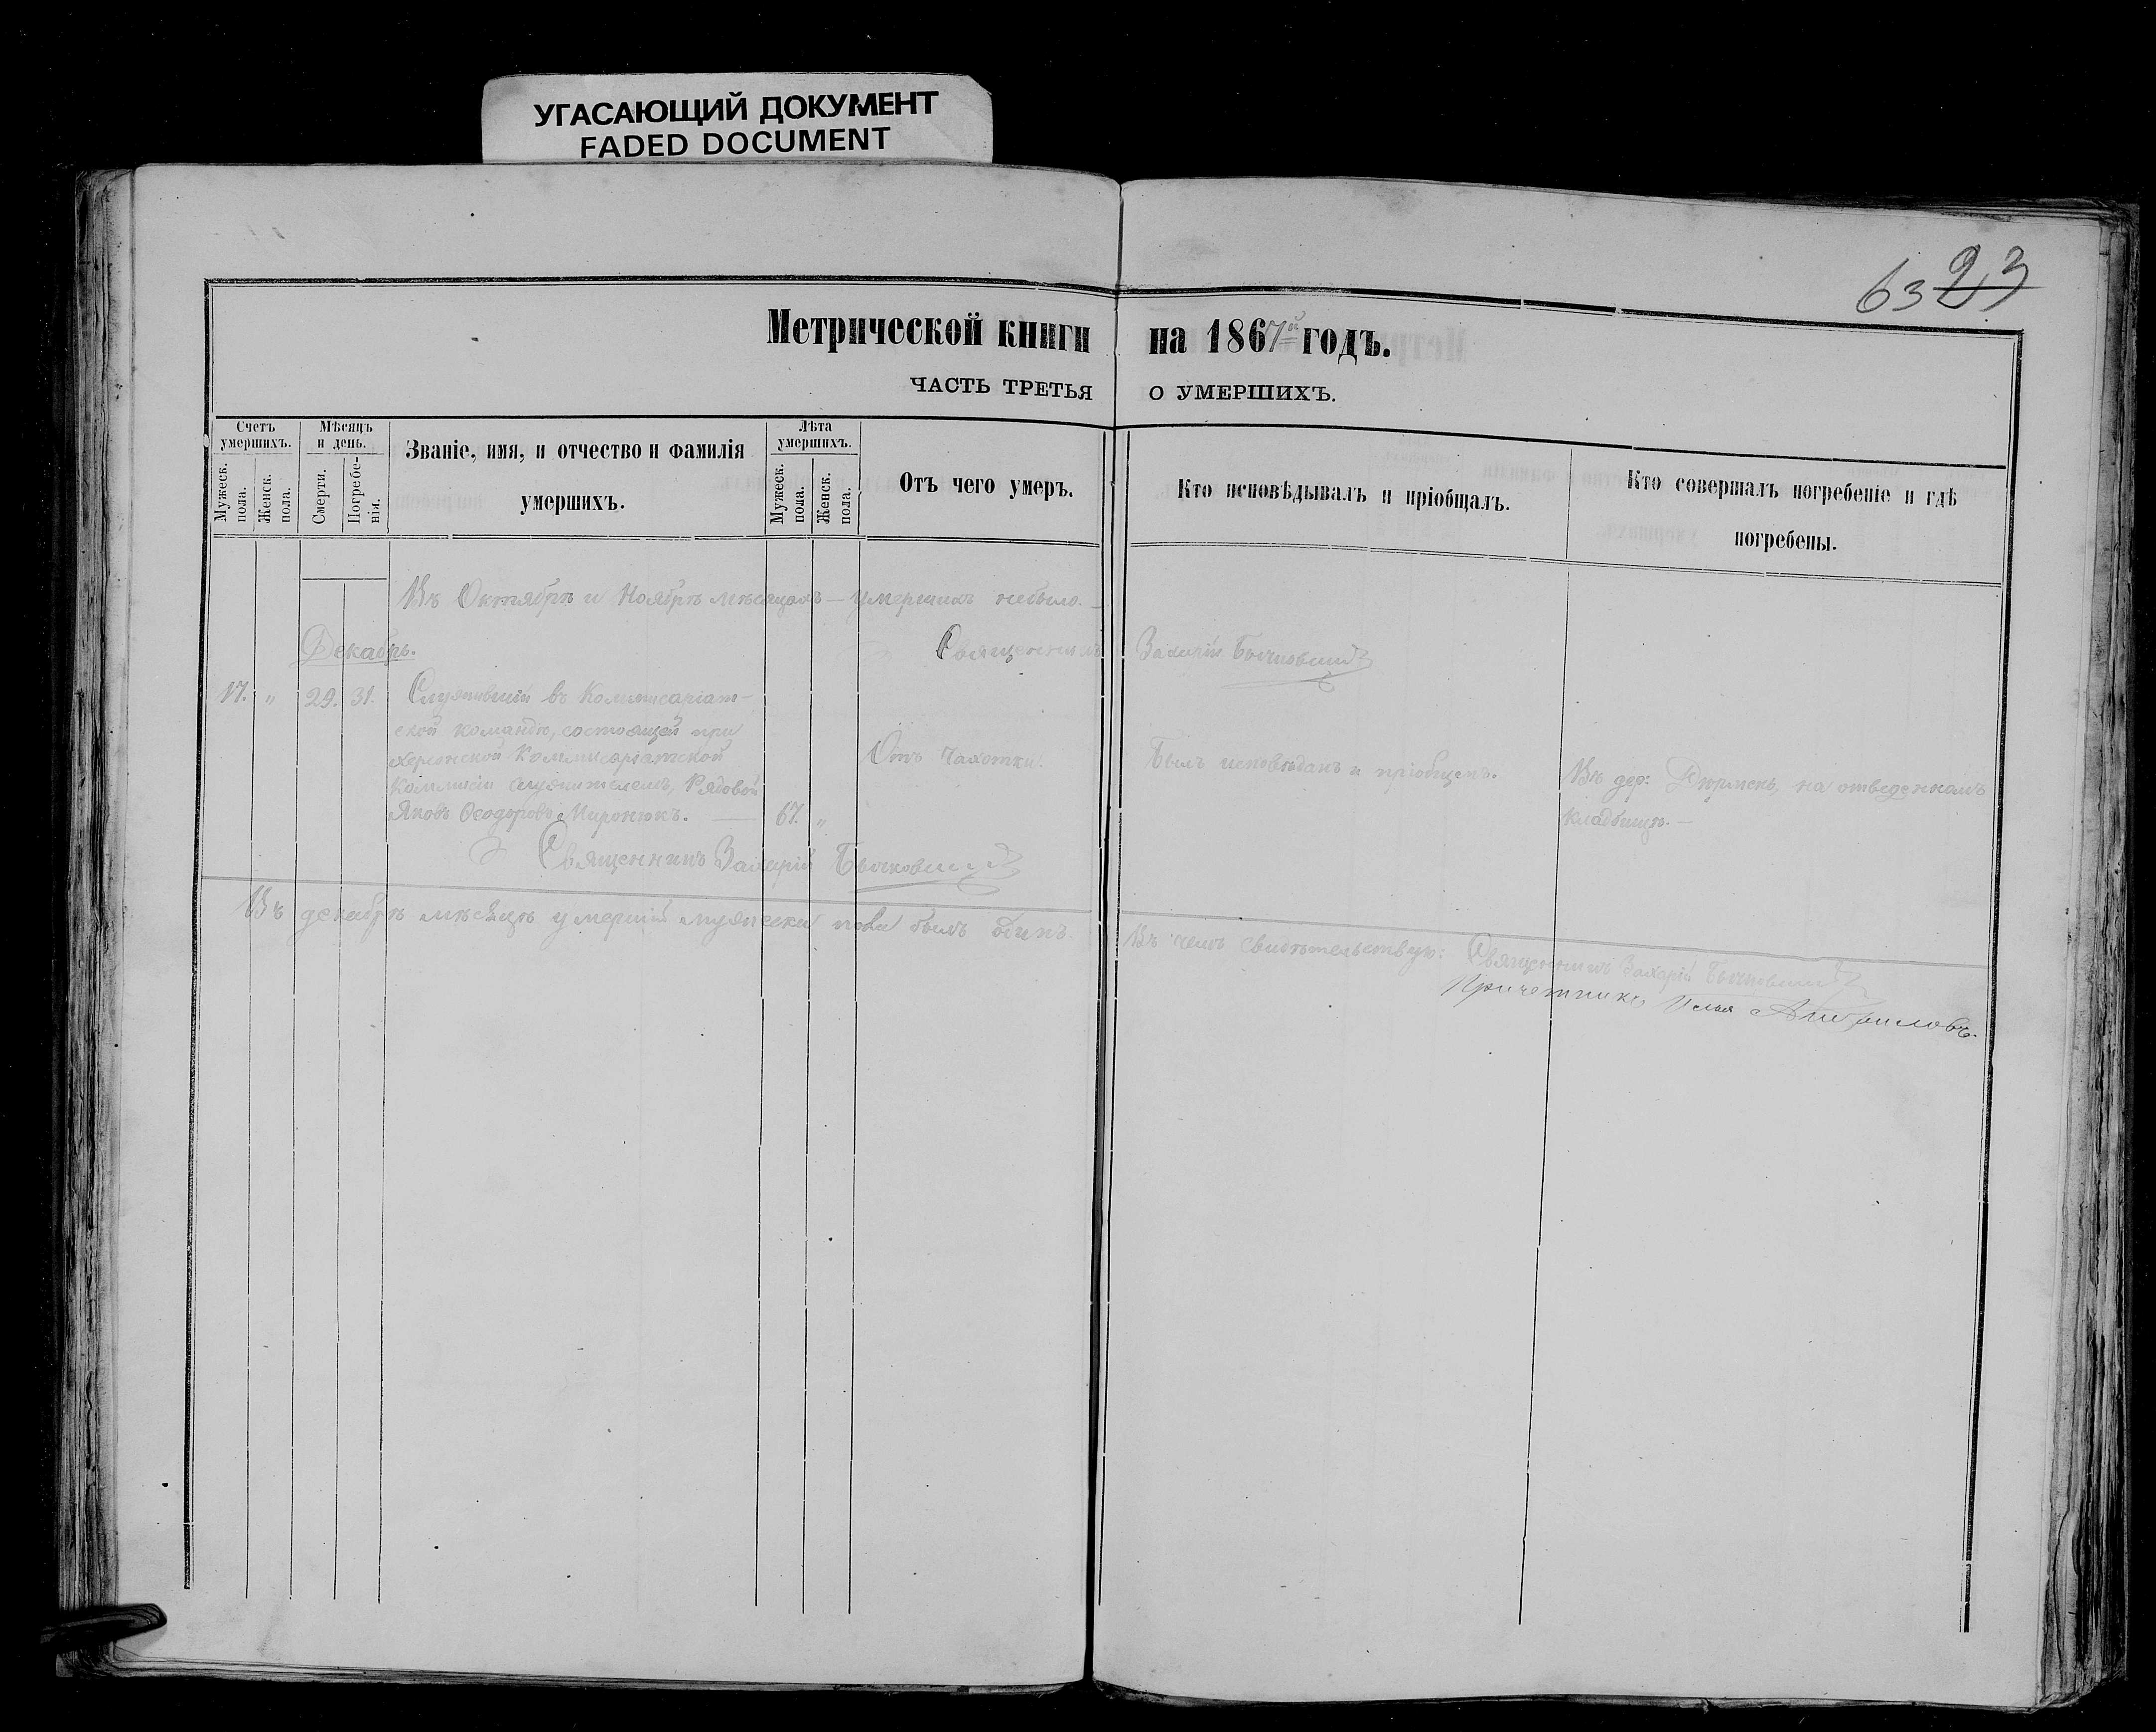 УГАСАЮЩИЙ ДОКУМЕНТ
FADED DOCUMENT
63 23
Метрической книги на 1867й годъ.
ЧАСТЬ ТРЕТЬЯ О УМЕРШИХЪ.
Счетъ умершихъ.
Мужеск. пола.
Женск. пола.
Мѣсяцъ и день.
Смерти.
Погребенія.
Званіе, имя, и отчество и фамилія
умершихъ.
Лѣта умершихъ.
Мужеск. пола.
Женск. пола.
Отъ чего умеръ.
Кто исповѣдывалъ и пріобщалъ.
Кто совершалъ погребеніе и гдѣ
погребены.
Въ Октябрѣ и Ноябрѣ мѣсяцахъ — умершихъ небыло. —
Декабрь.
Священникъ Захарій
17. " 29. 31. Служившій въ Коммисаріат-
ской командѣ, состоящей при
Херсонской Коммисаріатской
Коммисіи служителемъ, Рядовой
Яковъ Ѳеодоровъ Миронюкъ. — 67. "
Отъ чахотки.
Былъ исповѣданъ и пріобщенъ.
Въ дер: на отведенномъ
кладбищѣ. —
Священникъ Захарій
Въ декабрѣ мѣсяцѣ умершій мужеска пола былъ одинъ.
Въ чемъ свидѣтельствую: Священникъ Захарій
Причетникъ Илья